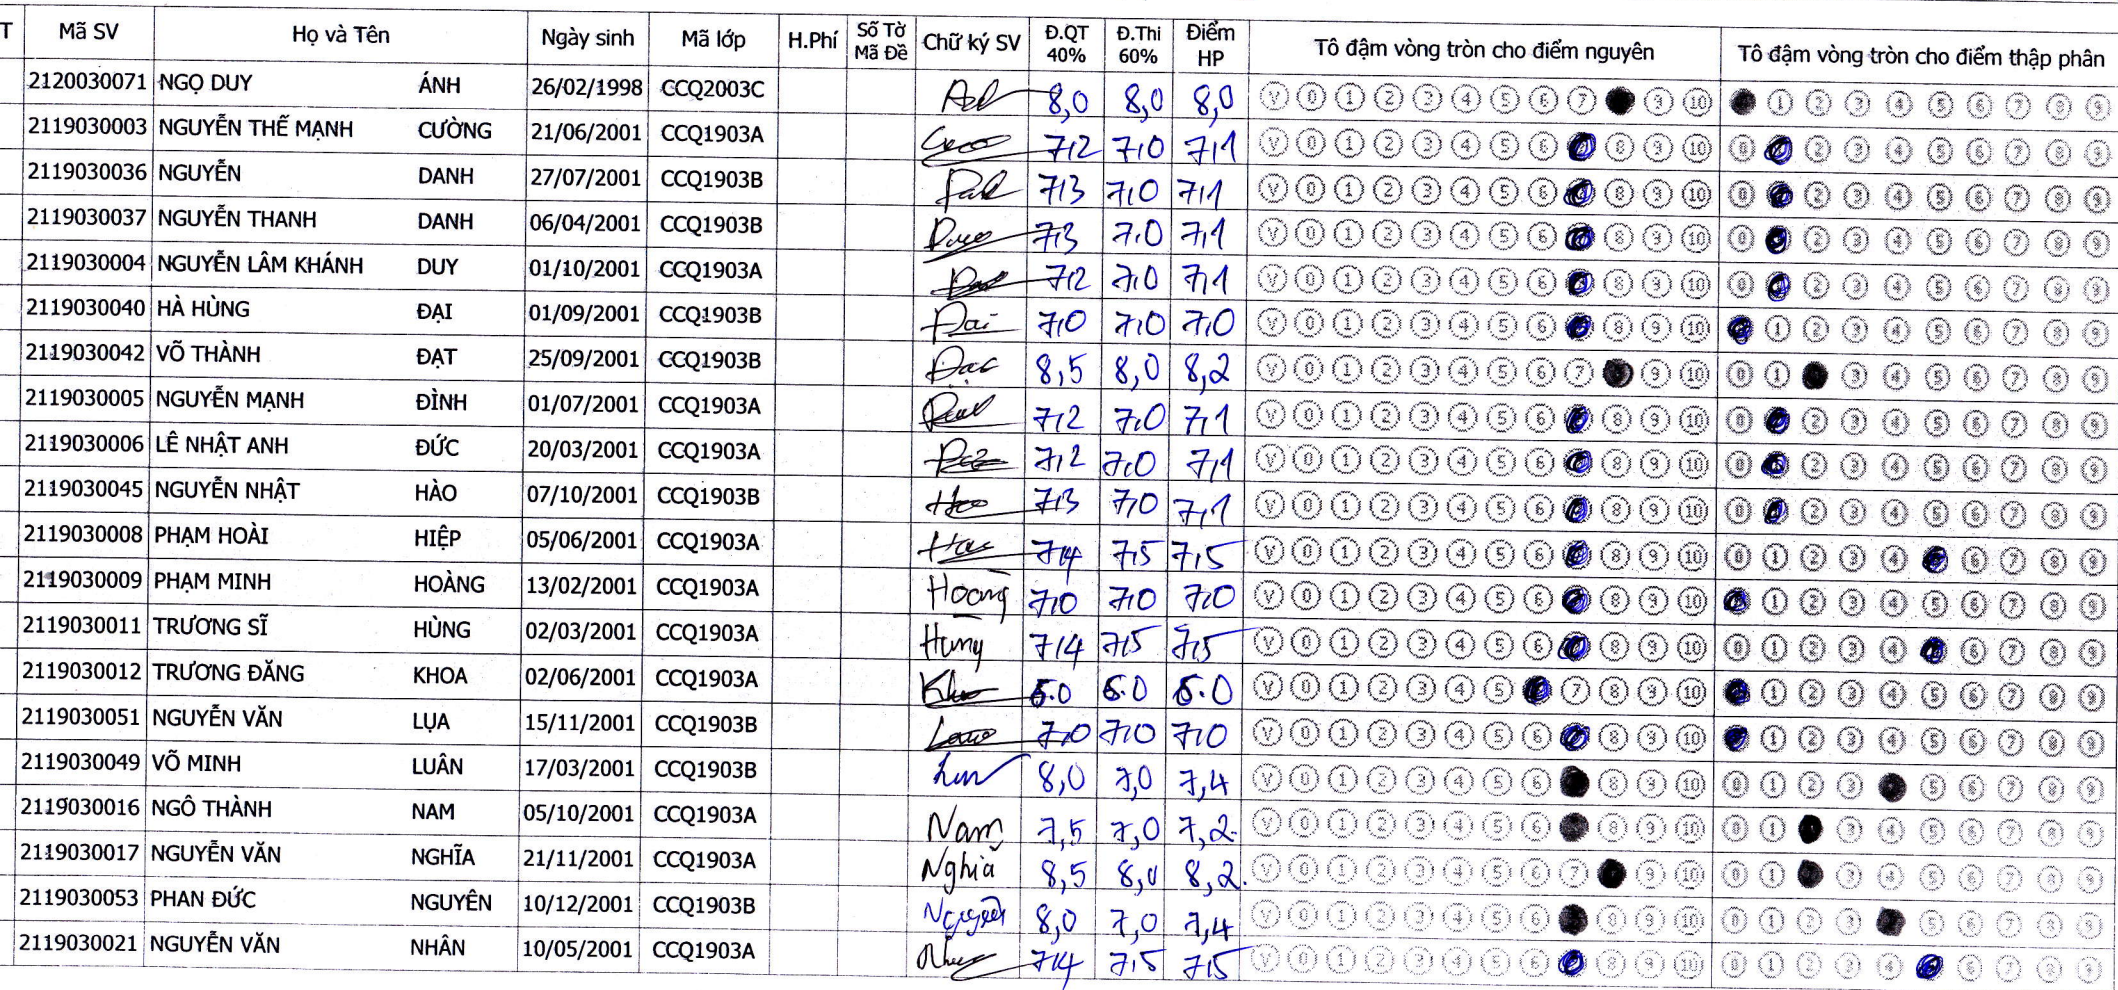 T Mã SV Họ và Tên Ngày sinh Mã lớp H.Phí Số Tờ Mã Đề Chữ ký SV Đ.QT 40% Đ.Thi 60% Điểm HP Tô đậm vòng tròn cho điểm nguyên Tô đậm vòng tròn cho điểm thập phân
2120030071 NGỌ DUY ÁNH 26/02/1998 CCQ2003C 8,0 8,0 8,0 V 0 1 2 3 4 5 6 7 9 10 1 2 3 4 5 6 7 8 9
2119030003 NGUYỄN THẾ MẠNH CƯỜNG 21/06/2001 CCQ1903A 7,2 7,0 7,1 V 0 1 2 3 4 5 6 8 9 10 0 2 3 4 5 6 7 8 9
2119030036 NGUYỄN DANH 27/07/2001 CCQ1903B 7,3 7,0 7,1 V 0 1 2 3 4 5 6 8 9 10 0 2 3 4 5 6 7 8 9
2119030037 NGUYỄN THANH DANH 06/04/2001 CCQ1903B 7,3 7,0 7,1 V 0 1 2 3 4 5 6 8 9 10 0 2 3 4 5 6 7 8 9
2119030004 NGUYỄN LÂM KHÁNH DUY 01/10/2001 CCQ1903A 7,2 7,0 7,1 V 0 1 2 3 4 5 6 8 9 10 0 2 3 4 5 6 7 8 9
2119030040 HÀ HÙNG ĐẠI 01/09/2001 CCQ1903B Đại 7,0 7,0 7,0 V 0 1 2 3 4 5 6 8 9 10 1 2 3 4 5 6 7 8 9
2119030042 VÕ THÀNH ĐẠT 25/09/2001 CCQ1903B 8,5 8,0 8,2 V 0 1 2 3 4 5 6 7 9 10 0 1 3 4 5 6 7 8 9
2119030005 NGUYỄN MẠNH ĐÌNH 01/07/2001 CCQ1903A 7,2 7,0 7,1 V 0 1 2 3 4 5 6 8 9 10 0 2 3 4 5 6 7 8 9
2119030006 LÊ NHẬT ANH ĐỨC 20/03/2001 CCQ1903A 7,2 7,0 7,1 V 0 1 2 3 4 5 6 8 9 10 0 2 3 4 5 6 7 8 9
2119030045 NGUYỄN NHẬT HÀO 07/10/2001 CCQ1903B 7,3 7,0 7,1 V 0 1 2 3 4 5 6 8 9 10 0 2 3 4 5 6 7 8 9
2119030008 PHẠM HOÀI HIỆP 05/06/2001 CCQ1903A 7,4 7,5 7,5 V 0 1 2 3 4 5 6 8 9 10 0 1 2 3 4 6 7 8 9
2119030009 PHẠM MINH HOÀNG 13/02/2001 CCQ1903A Hoàng 7,0 7,0 7,0 V 0 1 2 3 4 5 6 8 9 10 1 2 3 4 5 6 7 8 9
2119030011 TRƯƠNG SĨ HÙNG 02/03/2001 CCQ1903A Hùng 7,4 7,5 7,5 V 0 1 2 3 4 5 6 8 9 10 0 1 2 3 4 6 7 8 9
2119030012 TRƯƠNG ĐĂNG KHOA 02/06/2001 CCQ1903A 6.0 6.0 6.0 V 0 1 2 3 4 5 7 8 9 10 1 2 3 4 5 6 7 8 9
2119030051 NGUYỄN VĂN LỤA 15/11/2001 CCQ1903B 7,0 7,0 7,0 V 0 1 2 3 4 5 6 8 9 10 1 2 3 4 5 6 7 8 9
2119030049 VÕ MINH LUÂN 17/03/2001 CCQ1903B 8,0 7,0 7,4 V 0 1 2 3 4 5 6 8 9 10 0 1 2 3 5 6 7 8 9
2119030016 NGÔ THÀNH NAM 05/10/2001 CCQ1903A Nam 7,5 7,0 7,2 V 0 1 2 3 4 5 6 8 9 10 0 1 3 4 5 6 7 8 9
2119030017 NGUYỄN VĂN NGHĨA 21/11/2001 CCQ1903A Nghĩa 8,5 8,0 8,2. V 0 1 2 3 4 5 6 7 9 10 0 1 3 4 5 6 7 8 9
2119030053 PHAN ĐỨC NGUYÊN 10/12/2001 CCQ1903B Nguyên 8,0 7,0 7,4 V 0 1 2 3 4 5 6 8 9 10 0 1 2 3 5 6 7 8 9
2119030021 NGUYỄN VĂN NHÂN 10/05/2001 CCQ1903A 7,4 7,5 7,5 V 0 1 2 3 4 5 6 8 9 10 0 1 2 3 4 6 7 8 9